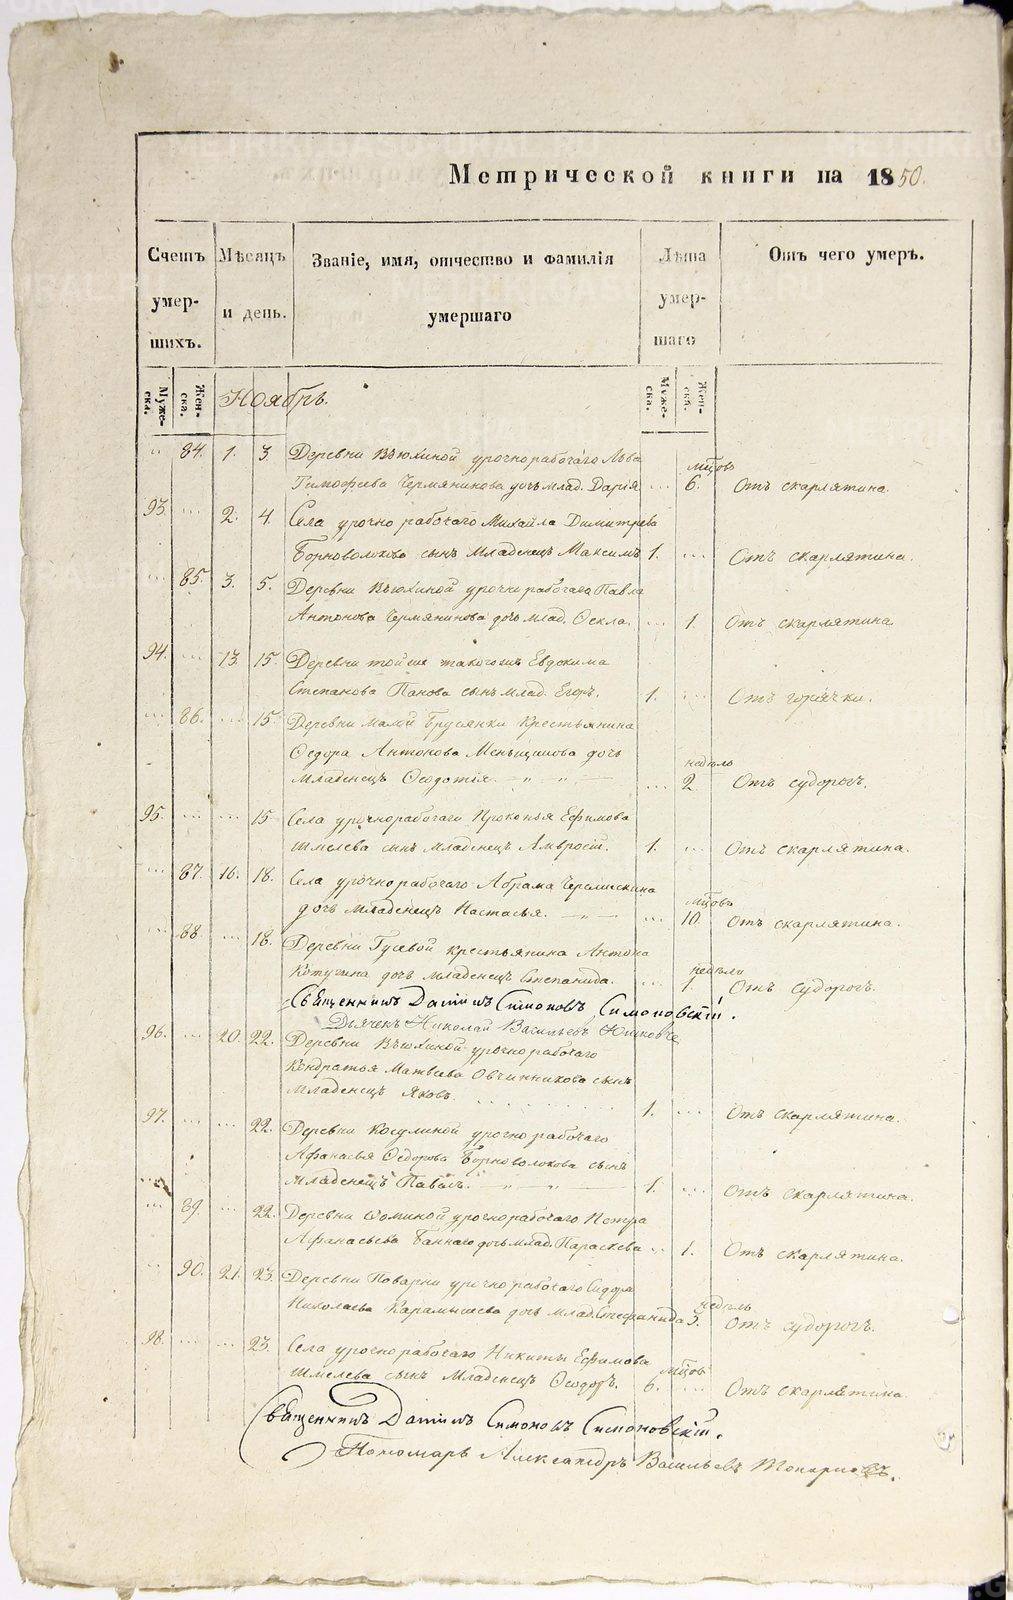 Метрической книги на 1850.
Счетъ умер- шихъ.
Мѣсяцъ и день.
Званіе, имя, отчество и фамилія умершаго
Лѣта умер- шаго
Отъ чего умеръ.
Муже- ска.
Жен- ска.
Муже- ска.
Жен- ска.
Ноябрь.
84. 1. 3. Деревни Вьюхиной урочнорабочаго Льва
мѣцовъ
Тимофеева Чермянинова дочь млад. Дарія 6. Отъ скарлятина.
93. 2. 4. Села урочно рабочаго Михайла Димитрева
Борноволокова сынъ младенецъ Максимъ 1. Отъ скарлятина.
85. 3. 5. Деревни Вьюхиной урочно рабочаго Павла
Антонова Чермянинова дочь млад. Оекла. 1. Отъ скарлятина
94. 13. 15. Деревни той же такогожъ Евдокима
Степанова Панова сынъ млад. Егоръ. 1. Отъ горячки.
86. 15. Деревни малой Брусянки Крестьянина
Ѳедора Антонова Меньщикова дочь
недѣль
младенецъ Ѳеодотія 2 Отъ судорогъ.
95. 15 Села урочнорабочаго Прокопья Ефимова
Шмелева сынъ младенецъ Амвросій. 1. Отъ скарлятина.
87. 16. 18. Села урочно рабочаго Абрама
мѣцовъ
дочь младенецъ Настасья. 10. Отъ скарлятина.
88. 18. Деревни Гусевой крестьянина Антона
недѣли
Котугина дочь младенецъ Степанида. 1. Отъ судорогъ.
Священникъ Даніилъ Симоновъ Симоновскій.
Дьячекъ Николай Васильевъ
96. 20. 22. Деревни Вьюхиной урочно рабочаго
Кондратья Матвеева Овчинникова сынъ
младенецъ Яковъ 1. Отъ скарлятина.
97. 22. Деревни Косулиной урочно рабочаго
Афанасья Ѳедорова Борноволокова сынъ
младенецъ Павелъ. 1. Отъ скарлятина.
89. 22. Деревни Фоминой урочнорабочаго Петра
Афанасьева Баннаго дочь млад. Параскева 1. Отъ скарлятина.
90. 21. 23. Деревни Поварни урочно рабочаго Сидора
недѣль
Николаева Карамышева дочь млад. Стефанида 3. Отъ судорогъ.
98. 23. Села урочно рабочаго Никиты Ефимова
мѣцовъ
Шмелева сынъ младенецъ Ѳеодоръ. 6. Отъ скарлятина.
Священникъ Даніилъ Симоновъ Симоновскій.
Пономарь Александръ Васильевъ